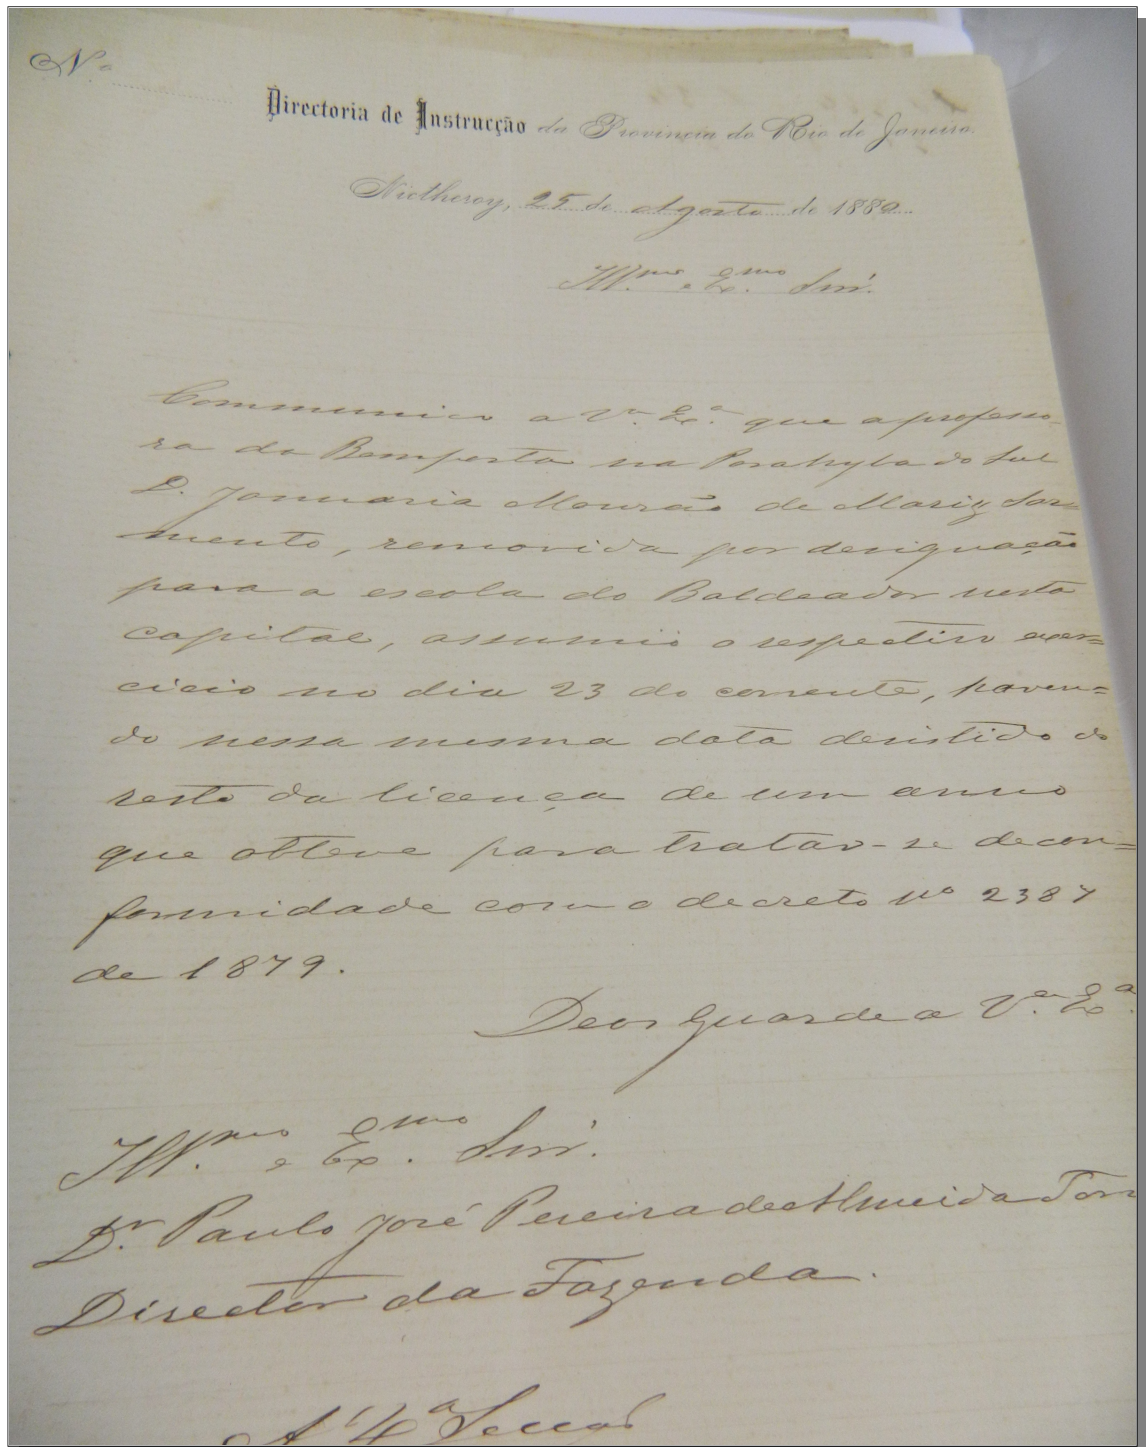 N.º
Directoria de Instrucção da Provincia do Rio de Janeiro.
Nictheroy, 25 de Agosto de 1880
Ill.mo e Ex.mo Snr.
Communico a V.ª Ex.ª que a professo-
ra da Bemposta na Parahyba do Sul
D. Januaria Mourão de Mariz Sar=
mento, removida por designação
para a escola do Baldeador nesta
capital, assumio o respectivo exer=
cicio no dia 23 do corrente, haven=
do nessa mesma data desistido do
resto da licença de um anno
que obteve para tratar-se de con=
formidade com o decreto nº 2387
de 1879.
Deos Guarde a V.ª Ex.ª
Ill.mo e Ex.mo Snr.
Dr. Paulo José Pereira de Almeida Torr
Director da Fazenda.
A' 4ª Secçaõ